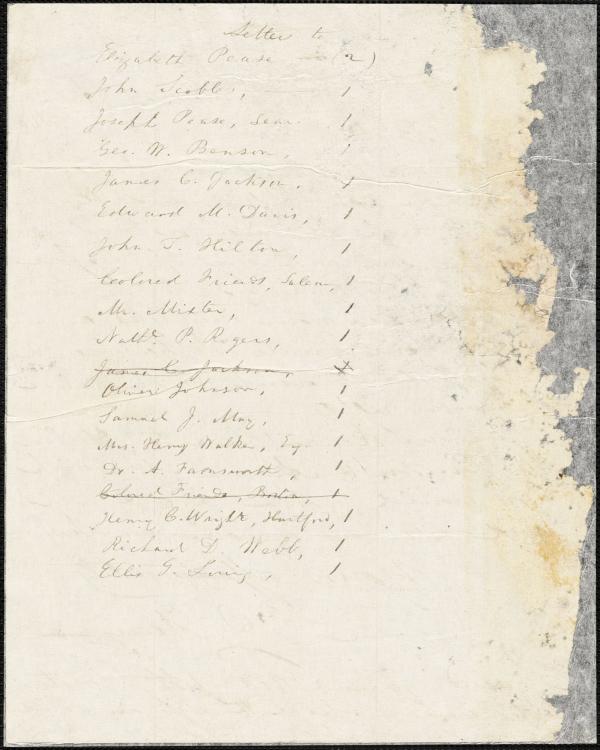 Letter to
Elizabeth Pease (2)
John Scoble, 1
Joseph Pease, Sen. 1
Geo. W. Benson, 1
James C. Jackson, 1
Edward M. Davis, 1
John T. Hilton, 1
Colored Friends, Salem, 1
Mr. Mixter, 1
Nathl. P. Rogers, 1
James C. Jackson,
Oliver Johnson, 1
Samuel J. May, 1
Mrs. Henry Walker, Esq. 1
Dr. A. Farnsworth, 1
Colored Friends, Boston, 1
Henry C. Wright, Hartford, 1
Richard D. Webb, 1
Ellis G. Loring, 1